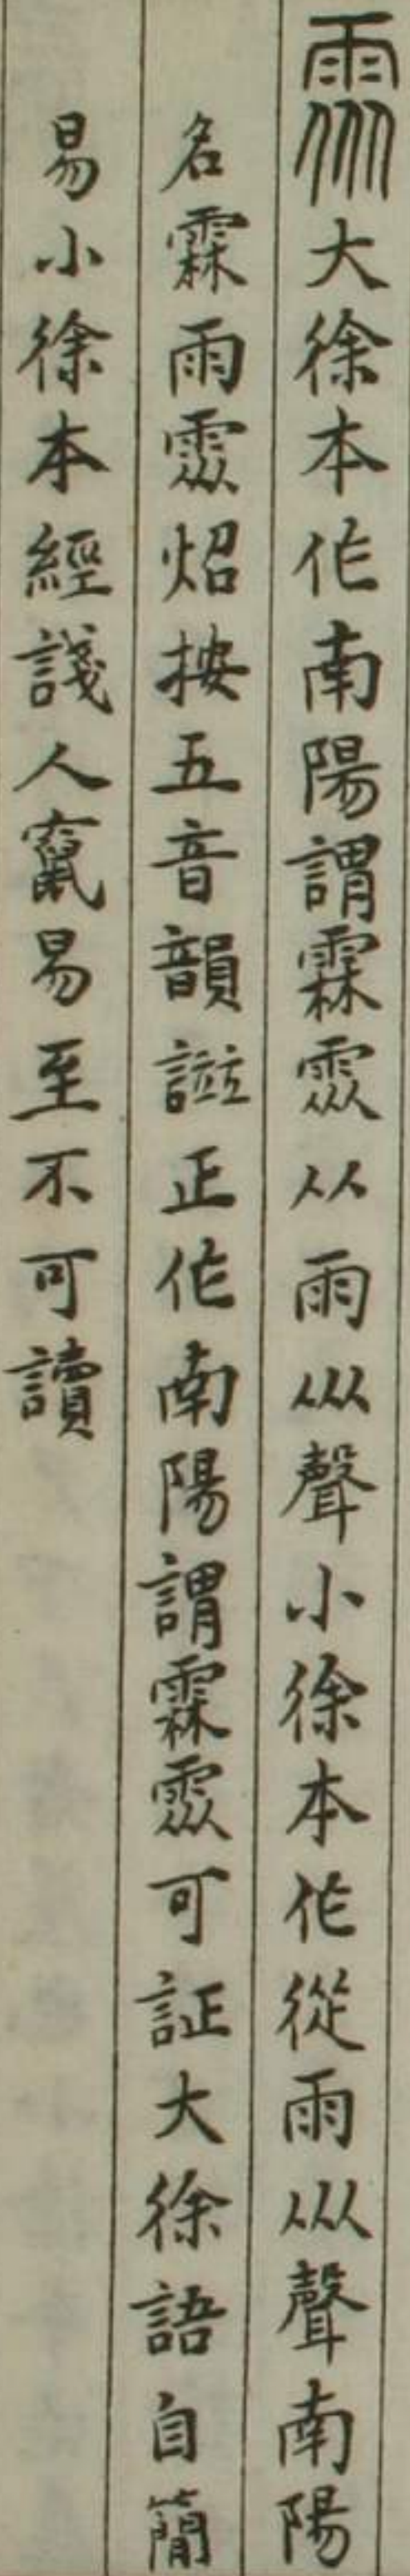 䨺大徐本作南陽謂霖䨺从雨乑聲小徐本作從雨乑聲南陽
名霖雨䨺炤按五音韻譜正作南陽謂霖䨺可証大徐語自簡
易小徐本經諓人竄易至不可讀